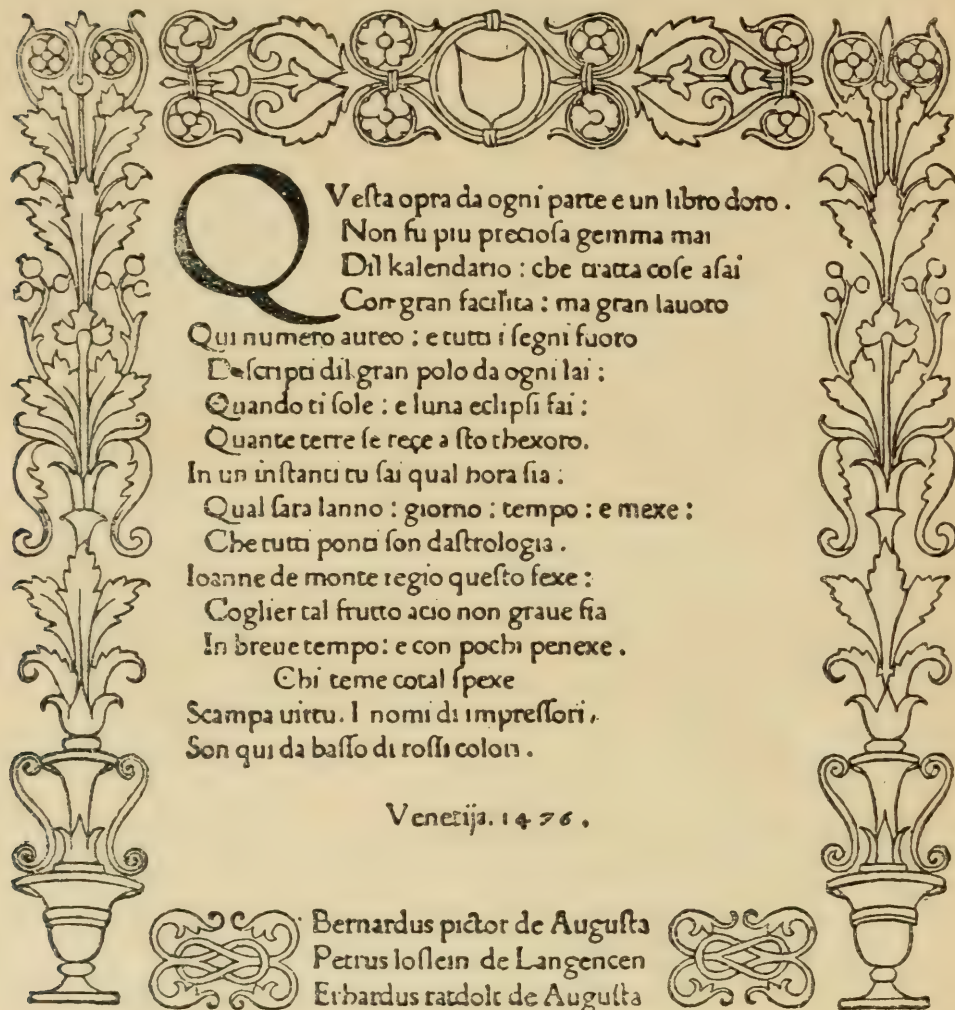 QVeſta opra da ogni parte e un libro doro.
Non fu piu precioſa gemma mai
Dil kalendario: che tratta coſe aſai
Con gran facilita: ma gran lauoro
Qui numero aureo: e tutti i ſegni fuoro
Deſcripti dil gran polo da ogni lai:
Quando ti ſole: e luna eclipſi fai:
Quante terre ſe reçe a ſto thexoro.
In un inſtanti tu ſai qual hora ſia:
Qual ſara lanno: giorno: tempo: e mexe:
Che tutti ponti ſon daſtrologia.
Ioanne de monte regio queſto fexe:
Coglier tal frutto acio non graue ſia
In breue tempo: e con pochi penexe.
Chi teme cotal ſpexe
Scampa uirtu. I nomi di impreſſori,
Son qui da baſſo di roſſi colori.
Venetijs. 1476.
Bernardus pictor de Auguſta
Petrus loſlein de Langencen
Erhardus ratdolt de Auguſta